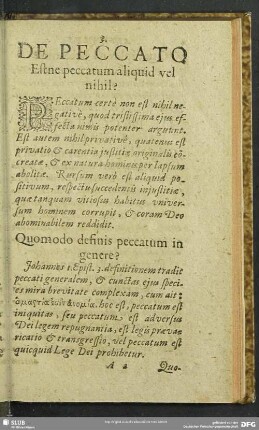 3.
DE PECCATO
Estne peccatum aliquid vel
nihil?
PEccatum certè non est nihil ne-
gativè, quod tristissima ejus ef-
fecta nimis potenter arguunt.
Est autem nihil privativè, quatenus est
privatio & carentia justitiæ originalis cō-
creatæ, & ex natura hominis per lapsum
abolitæ. Rursum verò est aliquid po-
sitivum, respectu succedentis injustitiæ,
quæ tanquam vitiosus habitus univer-
sum hominem corrupit, & coram Deo
abominabilem reddidit.
Quomodo definis peccatum in
genere?
Johannes 1. Epist. 3. definitionem tradit
peccati generalem, & cunctas ejus speci-
es mira brevitate complexam, cum ait:
hoc est, peccatum est
iniquitas, seu peccatum, est adversus
Dei legem repugnantia, est legis prævæ-
ricatio & transgressio, vel peccatum est
quicquid Lege Dei prohibetur.
A 2 Quo-
SLUB
DFG